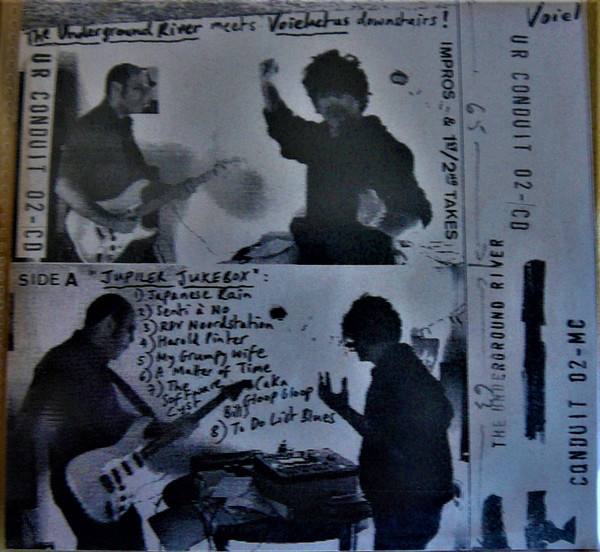 The Underground River meets Voichetus downstairs!
UR CONDUIT 02-CD
IMPROS - & 1ST/2ND TAKES
SIDE A "JUPILER JUKEBOX":
1) Japanese Rain
2) Senti à No
3) RDV Noordstation
4) Harold Pinter
5) My Grumpy Wife
6) A Matter of Time
7) The Software (aka
Cyst Bill Gloop Gloop
8) To Do List Blues
Voiel
UR CONDUIT 02-CD
THE UNDERGROUND RIVER
CONDUIT 02-MC